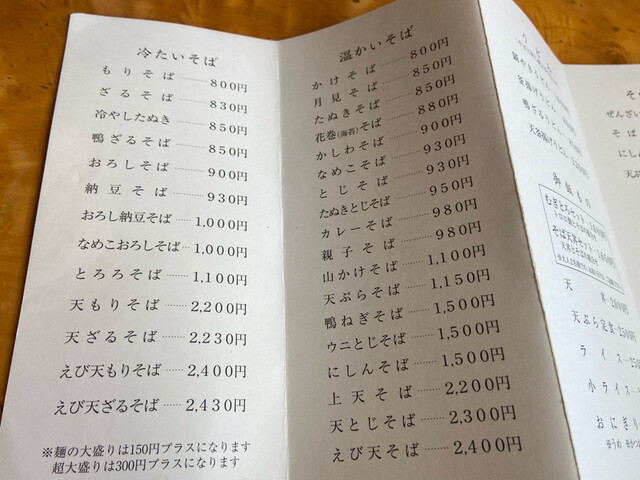 冷たいそば
もりそば……800円
ざるそば……830円
冷やしたぬき……850円
鴨ざるそば……850円
おろしそば……900円
納豆そば……930円
おろし納豆そば……1,000円
なめこおろしそば……1,000円
とろろそば……1,100円
天もりそば……2,200円
天ざるそば……2,230円
えび天もりそば……2,400円
えび天ざるそば……2,430円
※麺の大盛りは150円プラスになります
超大盛りは300円プラスになります
温かいそば
かけそば……800円
月見そば……850円
たぬきそば……850円
花巻(海苔)そば……880円
かしわそば……900円
なめこそば……930円
とじそば……930円
たぬきとじそば……950円
カレーそば……980円
親子そば……980円
山かけそば……1,100円
天ぷらそば……1,150円
鴨ねぎそば……1,500円
ウニとじそば……1,500円
にしんそば……1,500円
上天そば……2,200円
天とじそば……2,300円
えび天そば……2,400円
御飯もの
むぎとろセット
そば天丼セット
天丼
天ぷら定食
ライス
小ライス
おにぎり
ぜんざい
そば
にしん